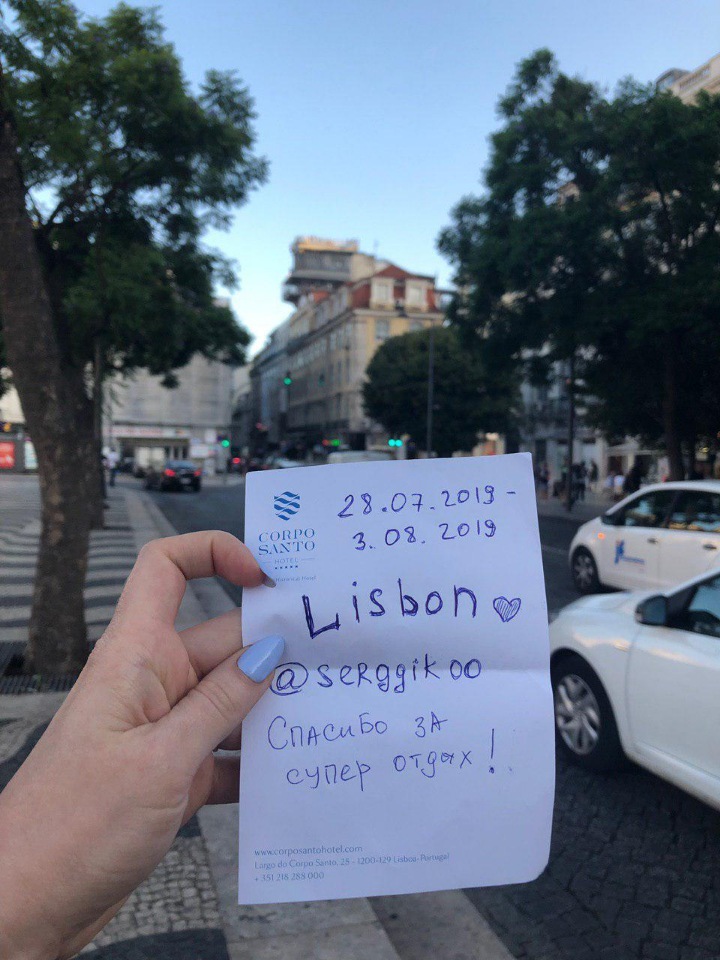 28.07.2019 -
3.08.2019
CORPO
SANTO
HOTEL
Historical Hotel
Lisbon
@serggikoo
Спасибо за
супер отдых!
www.corposantohotel.com
Largo do Corpo Santo, 25 - 1200-129 Lisboa-Portugal
+ 351 218 288 000